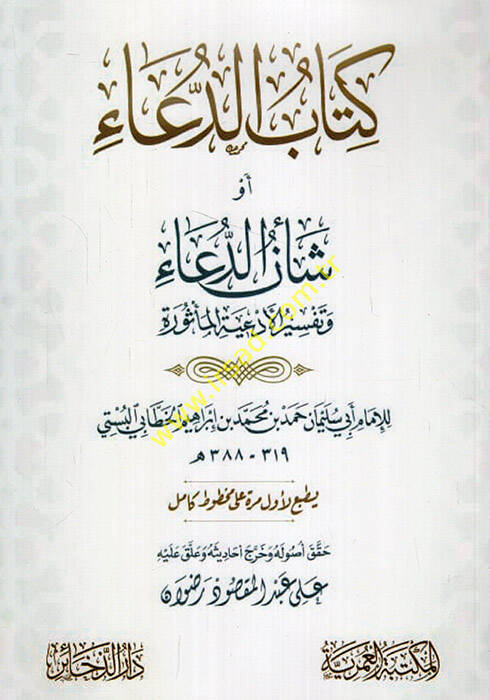 كِتَابُ الدُّعَاءِ
أَوْ
شَأْنُ الدُّعَاءِ
وَتَفْسِيرُ الأَدْعِيَةِ المَأْثُورَةِ
لِلإِمَامِ أَبِي سُلَيْمَانَ حَمَدِ بْنِ مُحَمَّدِ بْنِ إِبْرَاهِيمَ الخَطَّابِي البُسْتِي
٣١٩ - ٣٨٨ هـ
يطبع لأول مرة على مخطوط كامل
حَقَّقَ أُصُولَهُ وَخَرَّجَ أَحَادِيثَهُ وَعَلَّقَ عَلَيْهِ
علي عبد المقصود رضوان
المكتبة العمرية
دار الذخائر
www.irsad.com.tr